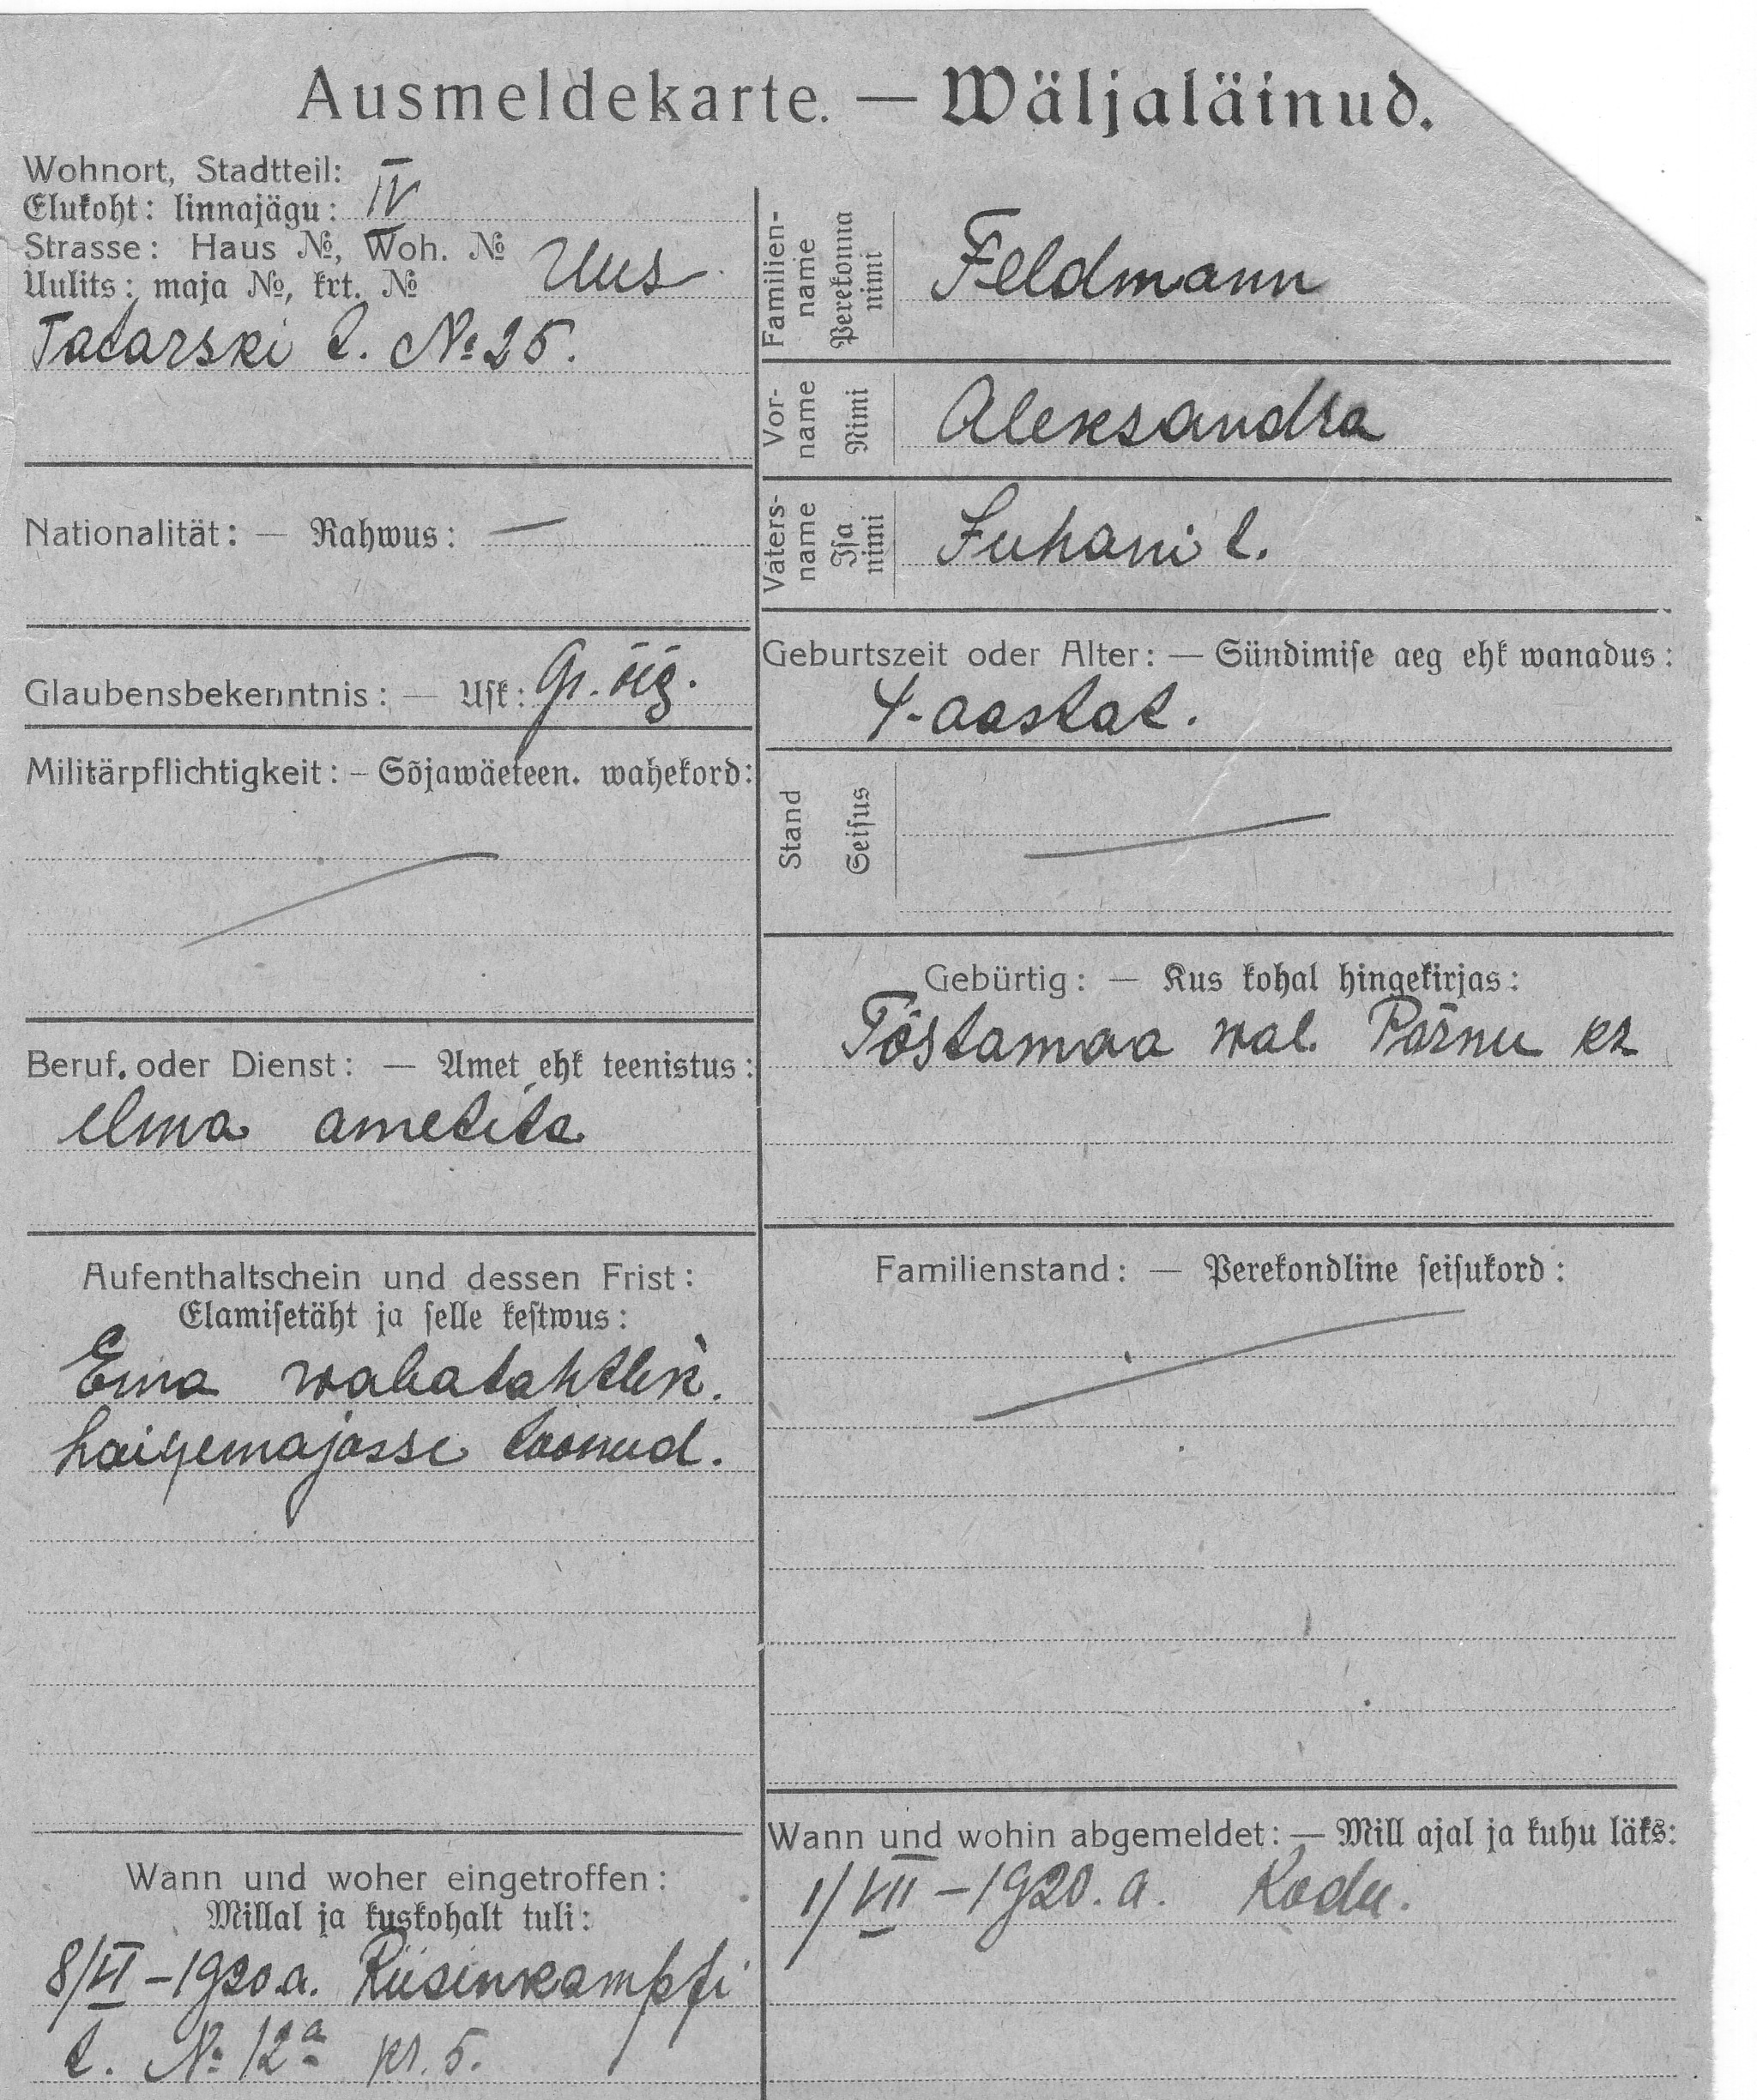 Ausmeldekarte. — Wäljaläinud.
Wohnort, Stadtteil:
Elukoht: linnajägu: IV
Strasse: Haus №, Woh. №
Uulits: maja №, krt. № Uus
Tatarski t. № 25.
Nationalität: — Rahwus: —
Glaubensbekenntnis: — Usk: Gr. õig.
Militärpflichtigkeit: – Sõjawäeteen. wahekord:
Beruf. oder Dienst: — Amet ehk teenistus:
ilma ametita
Aufenthaltschein und dessen Frist:
Elamisetäht ja selle kestwus:
Ema wabatahtlik.
haigemajasse toonud.
Wann und woher eingetroffen:
Millal ja kuskohalt tuli:
8/VI – 1920 a. Riisenkampfi
t. № 12a kr. 5.
Familien-
name
Perekonna
nimi
Feldmann
Vor-
name
Nimi
Aleksandra
Vaters-
name
Isa
nimi
Juhani t.
Geburtszeit oder Alter: — Sündimise aeg ehk wanadus:
4-aastat.
Stand
Seisus
Gebürtig: — Kus kohal hingekirjas:
Töstamaa wal. Pärnu kr
Familienstand: — Perekondline seisukord:
Wann und wohin abgemeldet: — Mill ajal ja kuhu läks:
1/VII – 1920. a. Kodu.